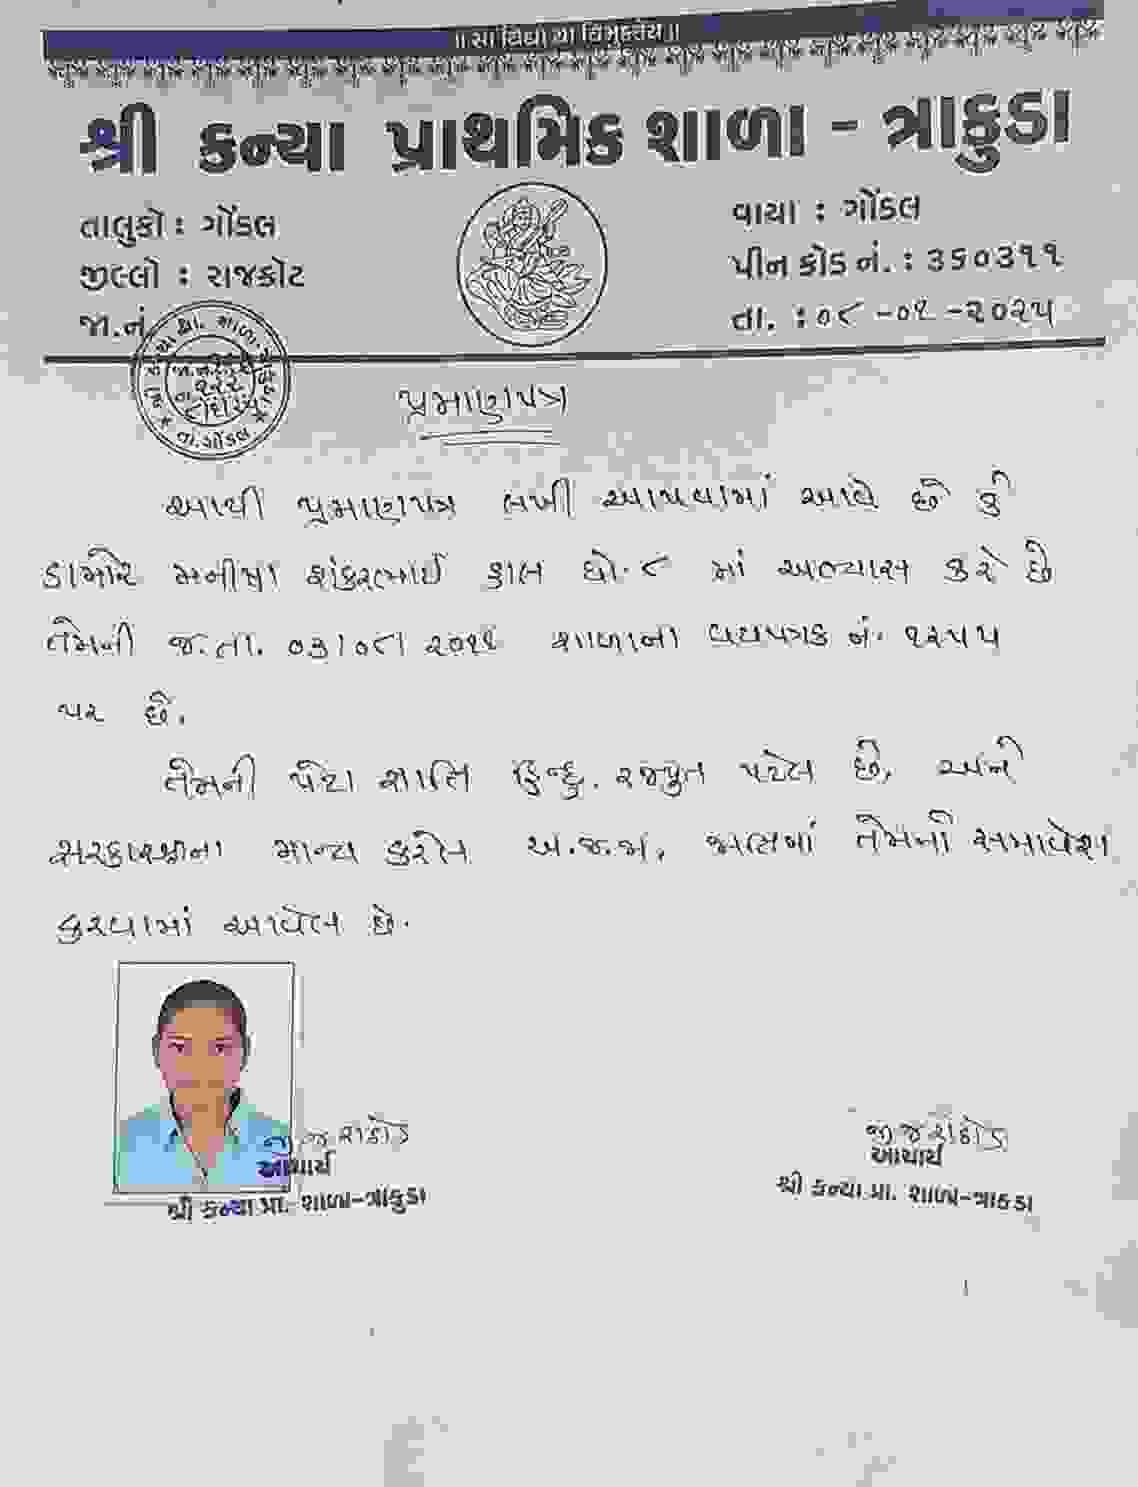 ॥ સા વિદ્યા યા વિમુક્તયે ॥
શ્રી કન્યા પ્રાથમિક શાળા - ત્રાકુડા
તાલુકો : ગોંડલ
જીલ્લો : રાજકોટ
જા.નં.
વાયા : ગોંડલ
પીન કોડ નં. : ૩૬૦૩૧૧
તા. : ૦૮-૦૧-૨૦૨૫
તા. ગોંડલ
પ્રમાણપત્ર
આથી પ્રમાણપત્ર લખી આપવામાં આવે છે કે
ડામોર મનીષા શંકરભાઈ હાલ ધો.૮ માં અભ્યાસ કરે છે
તેમની જ.તા. ૦૩/૦૮/૨૦૧૧ શાળાના વયપત્રક નં. ૧૨૫૫
પર છે.
તેમની પેટા જ્ઞાતિ હિન્દુ. રજપુત પટેલ છે, અને
સરકારશ્રીના માન્ય કરેલ અ.જ.જા. જાતિમાં તેમનો સમાવેશ
કરવામાં આવેલ છે.
આચાર્ય
શ્રી કન્યા પ્રા. શાળા-ત્રાકુડા
આચાર્ય
શ્રી કન્યા પ્રા. શાળા-ત્રાકુડા